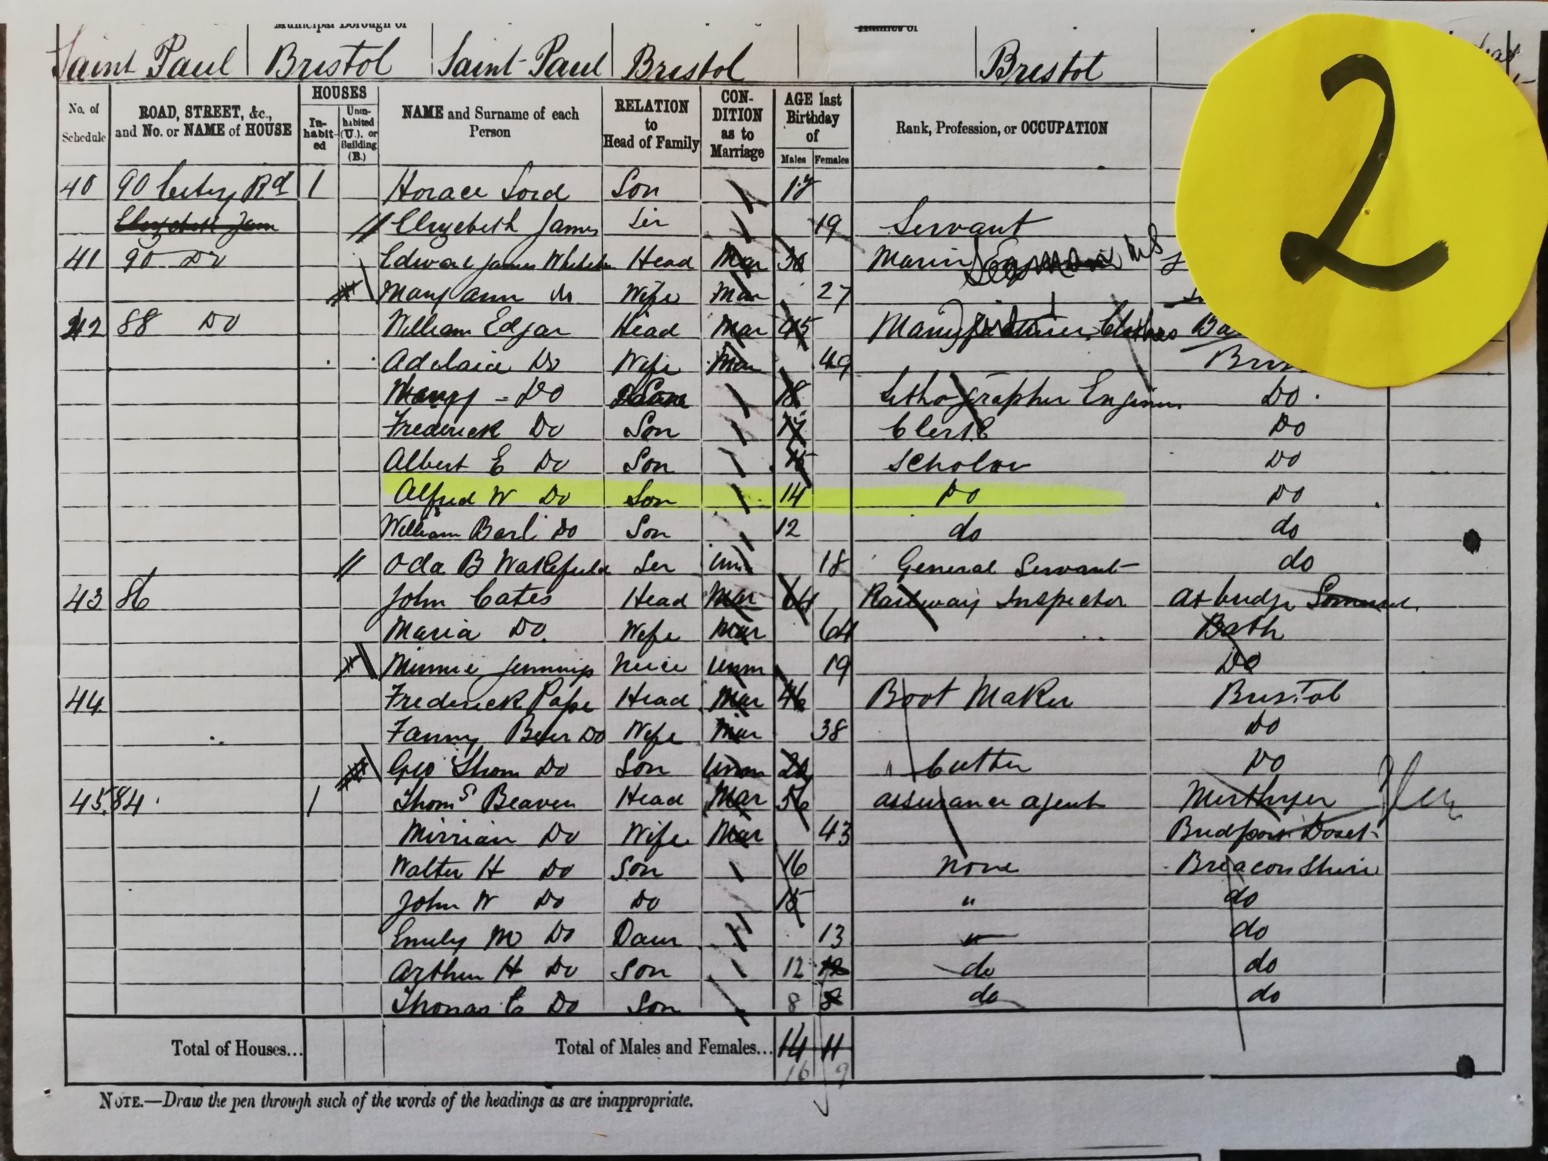 Municipal Borough of
Saint Paul Bristol Saint Paul Bristol Bristol
2
No. of Schedule ROAD, STREET, &c., and No. or NAME of HOUSE HOUSES In-habit-ed Unin-habited (U.), or Building (B.) NAME and Surname of each Person RELATION to Head of Family CON-DITION as to Marriage AGE last Birthday of Males Females Rank, Profession, or OCCUPATION
40 90 City Rd 1 Horace Lord Son 17
Elizebeth James Ser 19 Servant
41 90 Do Edward James Head Mar
Mary Ann Do Wife Mar 27
42 88 Do William Edgar Head Mar 45
Adelaid Do Wife Mar 49
Do Son 18 Lithographer Do
Frederick Do Son 17 Clerk Do
Albert E Do Son 15 Scholar Do
Alfred W Do Son 14 Do Do
William Basil Do Son 12 do do
Oda B Wakefield Ser Un 18 General Servant do
43 86 John Cates Head Mar 64 Railway Inspector Axbridge Somerset
Maria Do Wife Mar 64 Bath
Minnie Jennings Neice Unm 19 Do
44 Frederick Pope Head Mar 46 Boot Maker Bristol
Fanny Do Wife Mar 38 Do
Geo Thom Do Son Unm 20 " Cutter Do
45 84 1 Thoms Beaven Head Mar 56 assurance agent Merthyer
Mirrian Do Wife Mar 43 Bridport Dorset
Walter H Do Son 16 none Breaconshire
John W Do Do 15 " do
Emily M Do Daur 13 " do
Arthur H Do Son 12 do do
Thomas E Do Son 8 do do
Total of Houses... Total of Males and Females... 14 11
16 9
NOTE.—Draw the pen through such of the words of the headings as are inappropriate.